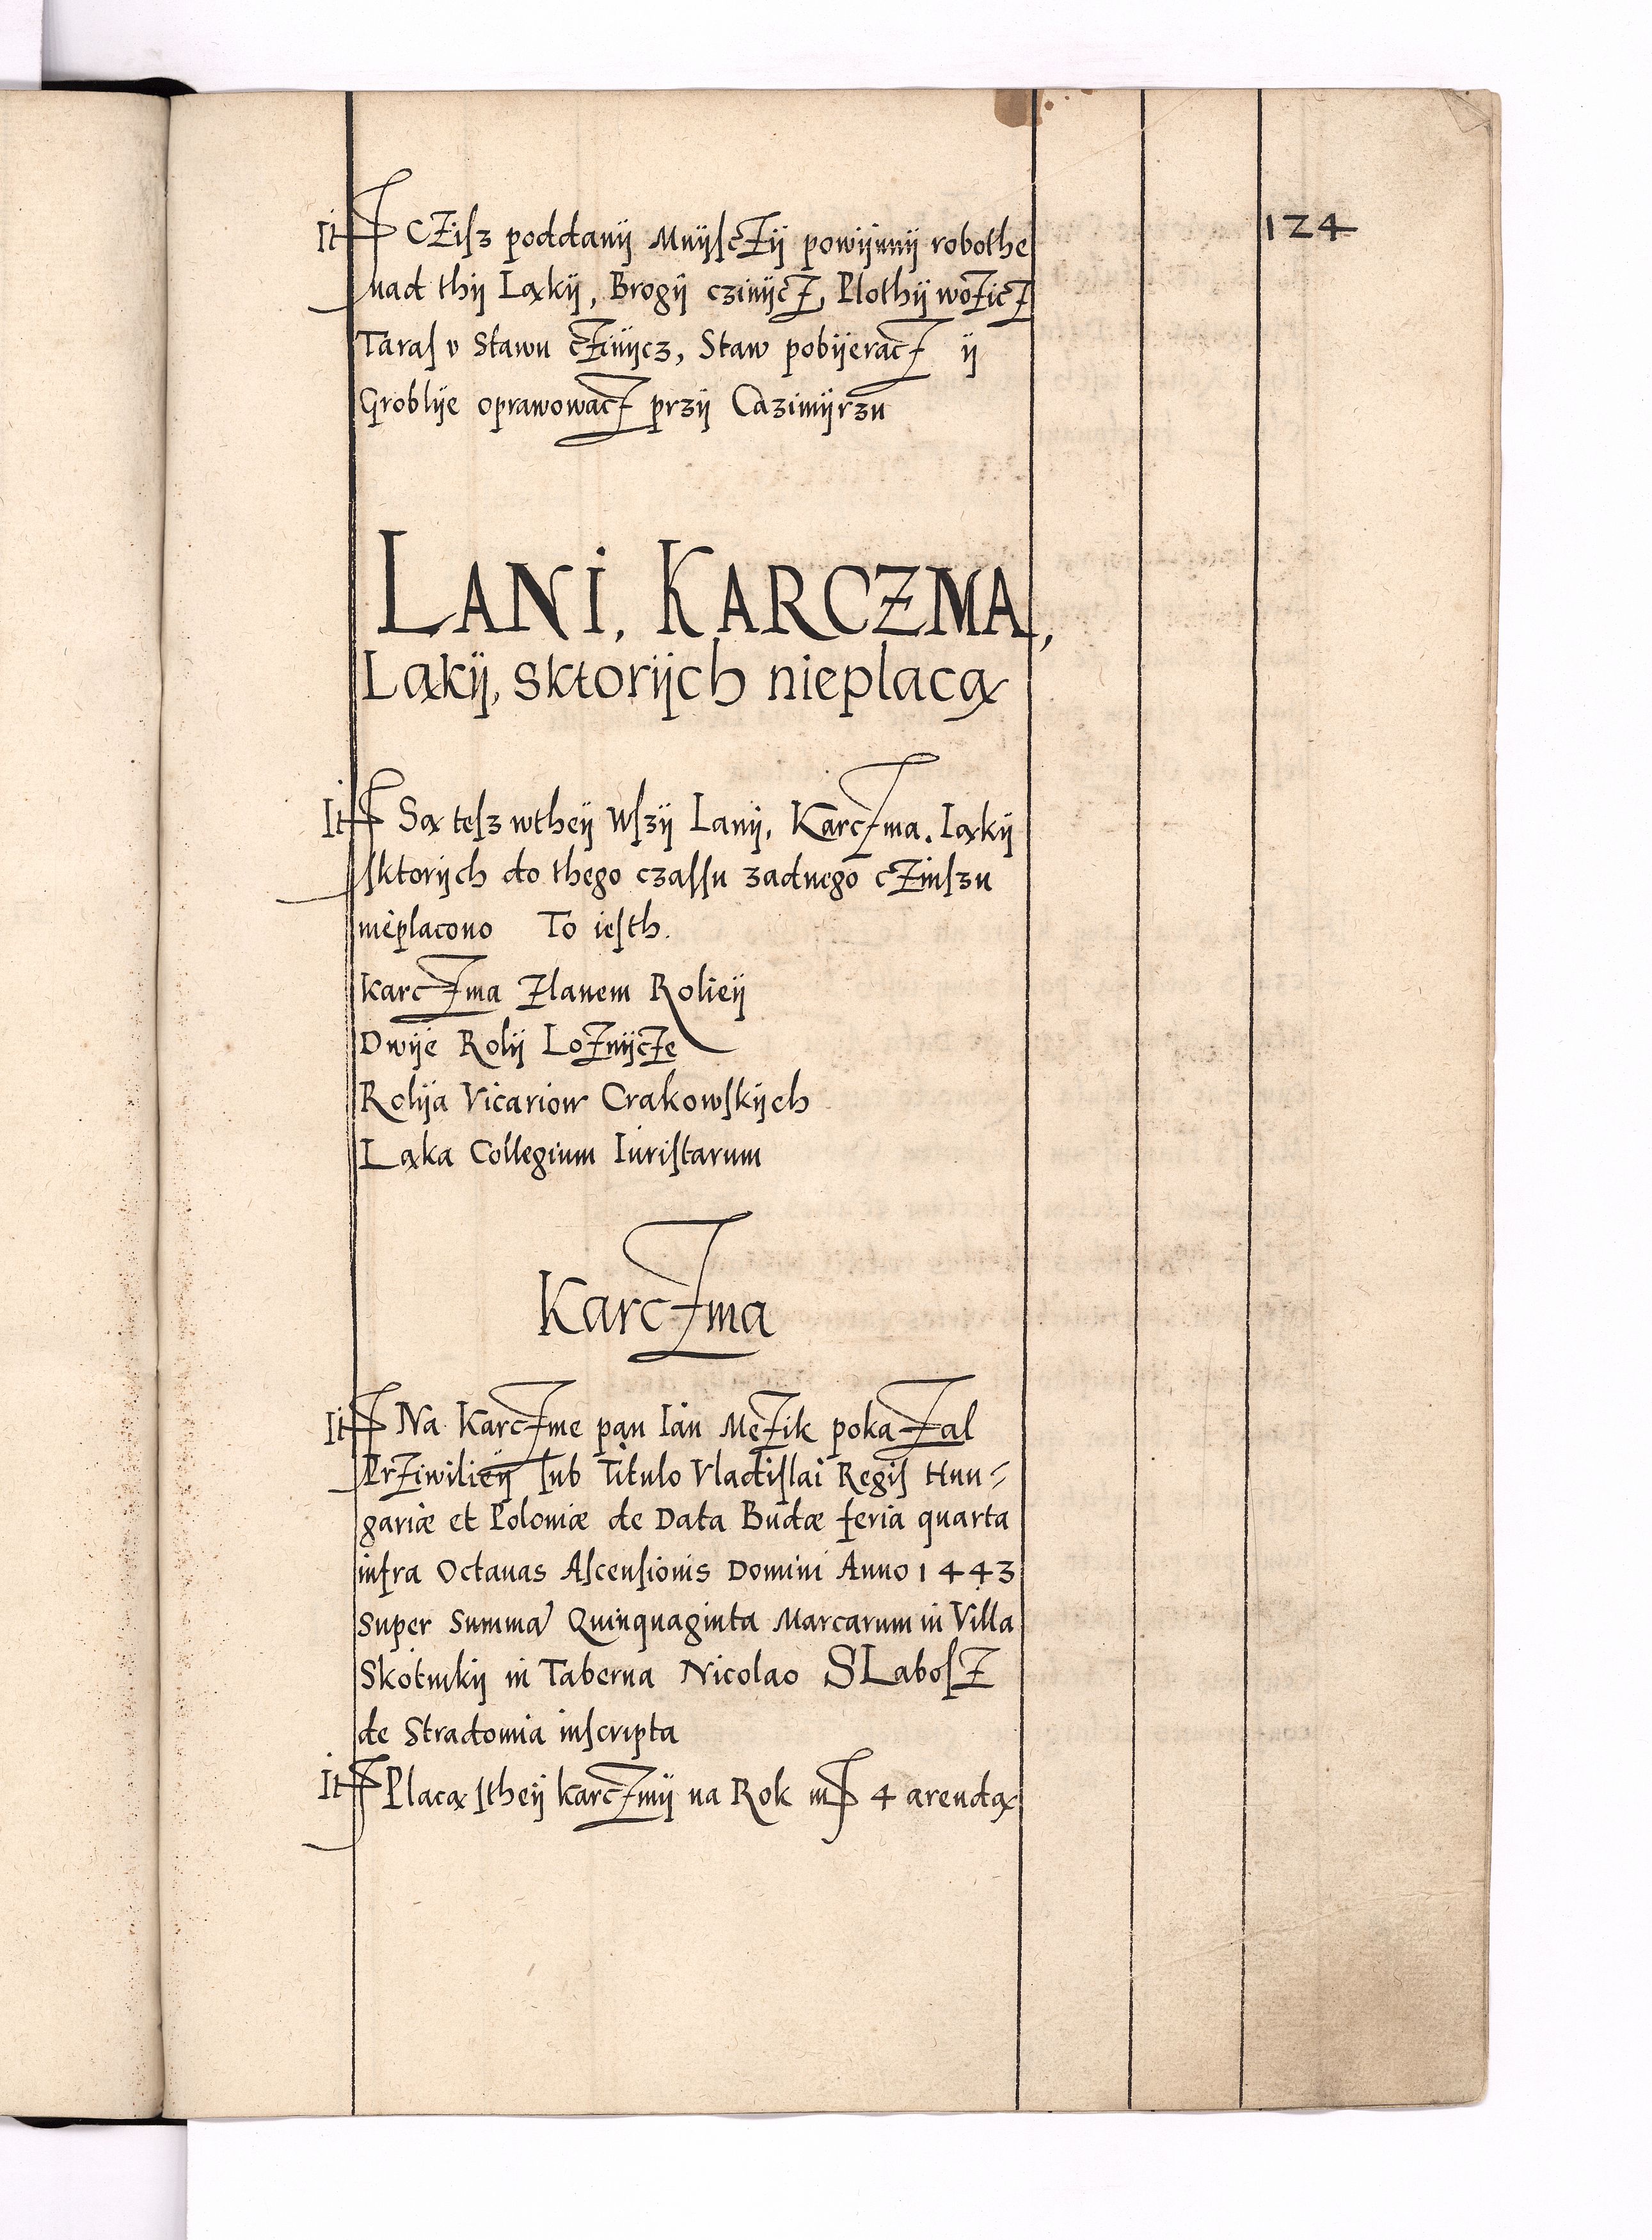 124
It CZiſz poddanij MnijſcZij powijnnij robothe
nad thij Ląkij, Brogij czinijcZ, Plothij woZicZ
Taraſ v Stawu cZinijcz, Staw pobijeracZ ij
Groblije oprawowacZ przij Cazimijrzu
LANI, KARCZMA,
Ląkij, sktorijch nieplacą
It Są teſz wtheij Wſzij Lanij, KarcZma. Ląkij
ſktorijch do thego czaſſu zadnego cZinſzu
nieplacono To ieſth.
KarcZma Zlanem Rolieij
Dwije Rolij LoZnijcZe
Rolija Vicariow Crakowſkijch
Ląka Collegium Iuriſtarum
KarcZma
It Na KarcZme pan Ian MeZik pokaZal
PrZiwilieij ſub Titulo Vladiſlai Regiſ Hun⸗
gariæ et Poloniæ de Data Budæ feria quarta
infra Octauas Aſcenſionis Domini Anno 1443
Super Summa Quinquaginta Marcarum in Villa
Skotnikij in Taberna Nicolao SLaboſZ
de Stradomia inſcripta
It Placą ſtheij karcZmij na Rok m 4 arendą